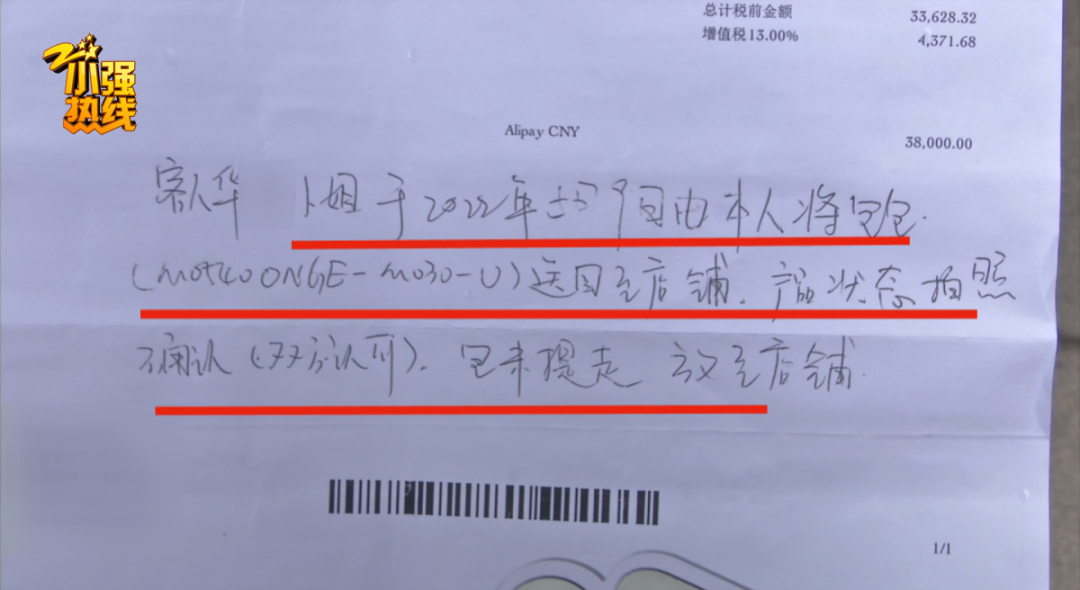 小强热线
总计税前金额 33,628.32
增值税13.00% 4,371.68
Alipay CNY 38,000.00
客人华 小姐于2022年 月9日由本人将包包.
送回至店铺. 产品状态拍照
确认(双方认可). 包未提走 放至店铺.
1/1